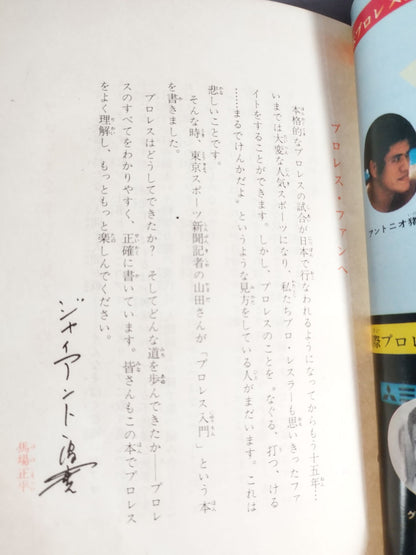 プロレス・ファンへ
本格的なプロレスの試合が日本で行なわれるようになってからもう十五年…
いまでは大変な人気スポーツになり、私たちプロ・レスラーも思いきったファ
イトをすることができます。しかし、プロレスのことを〝なぐる、打つ、ける
……まるでけんかだよ〟というような見方をしている人がまだいます。これは
悲しいことです。
そんな時、東京スポーツ新聞記者の山田さんが「プロレス入門」という本
を書きました。
プロレスはどうしてできたか？ そしてどんな道を歩んできたか――プロレ
スのすべてをわかりやすく、正確に書いています。皆さんもこの本でプロレス
をよく理解し、もっともっと楽しんでください。
ジャイアント馬場
馬場正平
プロレス
アントニオ猪
際プロレ